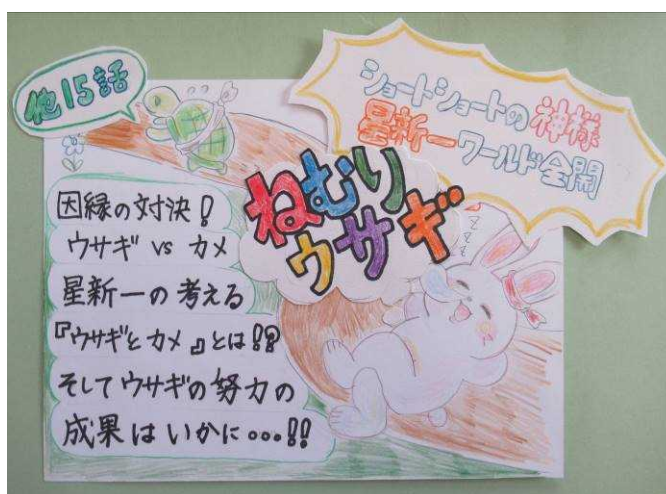 他15話
ショートショートの神様
星新一ワールド全開
ねむり
ウサギ
因縁の対決!
ウサギ vs カメ
星新一の考える
『ウサギとカメ』とは!?
そしてウサギの努力の
成果はいかに…!!